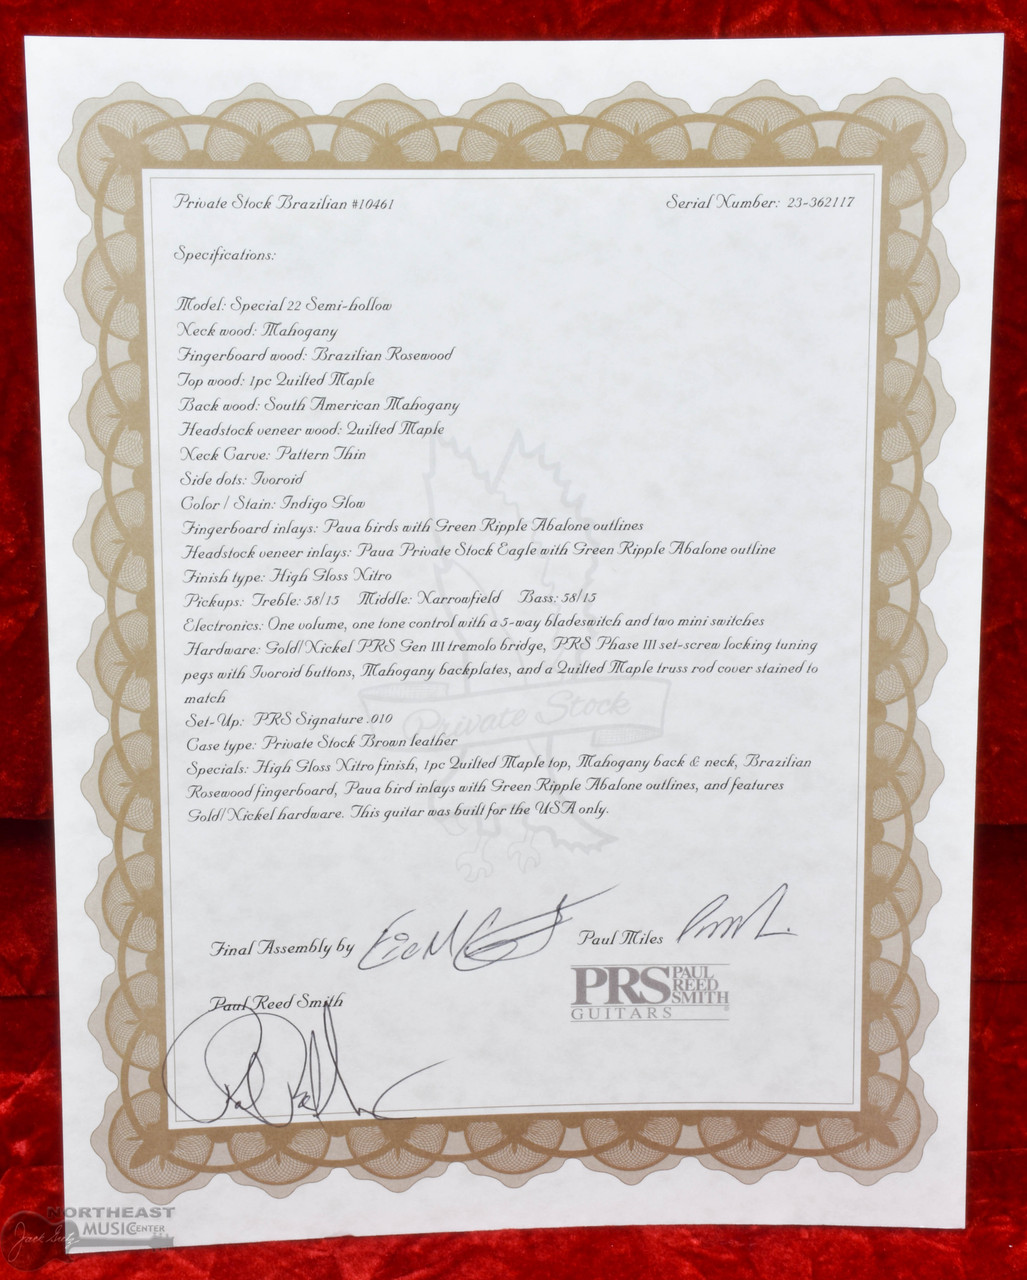 Private Stock Brazilian #10461 Serial Number: 23-362117
Specifications:
Model: Special 22 Semi-hollow
Neck wood: Mahogany
Fingerboard wood: Brazilian Rosewood
Top wood: 1pc Quilted Maple
Back wood: South American Mahogany
Headstock veneer wood: Quilted Maple
Neck Carve: Pattern Thin
Side dots: Ivoroid
Color / Stain: Indigo Glow
Fingerboard inlays: Paua birds with Green Ripple Abalone outlines
Headstock veneer inlays: Paua Private Stock Eagle with Green Ripple Abalone outline
Finish type: High Gloss Nitro
Pickups: Treble: 58/15 Middle: Narrowfield Bass: 58/15
Electronics: One volume, one tone control with a 5-way bladeswitch and two mini switches
Hardware: Gold/Nickel PRS Gen III tremolo bridge, PRS Phase III set-screw locking tuning
pegs with Ivoroid buttons, Mahogany backplates, and a Quilted Maple truss rod cover stained to
match
Set-Up: PRS Signature .010
Case type: Private Stock Brown leather
Specials: High Gloss Nitro finish, 1pc Quilted Maple top, Mahogany back & neck, Brazilian
Rosewood fingerboard, Paua bird inlays with Green Ripple Abalone outlines, and features
Gold/Nickel hardware. This guitar was built for the USA only.
Private Stock
Final Assembly by
Paul Miles
PRS PAUL REED SMITH
GUITARS
Paul Reed Smith
NORTHEAST
MUSIC CENTER